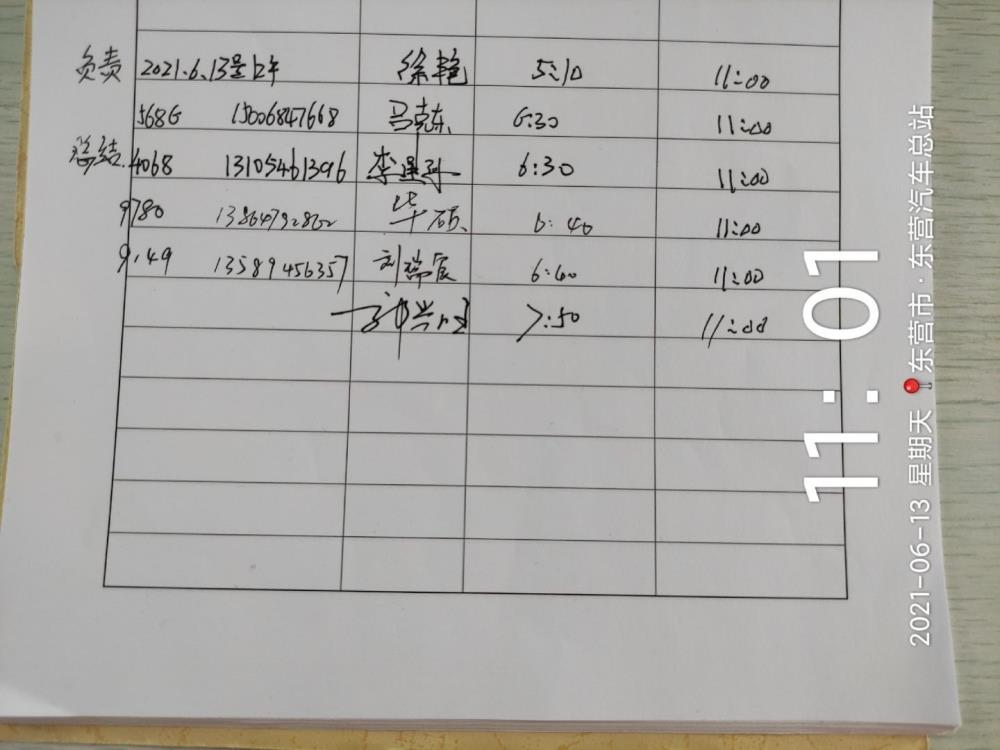 负责 2021.6.13星期日上午 徐艳 5:10 11:00
568G 15006847668 马克东 6:30 11:00
总结. 4068 13105461396 6:30 11:00
9780 13864792862 毕硕 6:40 11:00
9.49 13589456357 刘瑞宸 6:40 11:00
7:50 11:00
11:01
2021-06-13 星期天 东营市·东营汽车总站